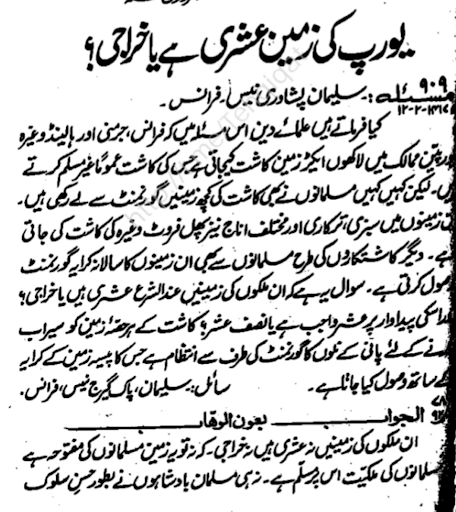 یورپ کی زمین عشری ہے یا خراجی؟
۹۰۹
مسئلہ:۔ سلیمان پشاوری نیس۔ فرانس۔
کیا فرماتے ہیں علمائے دین اس مسئلہ میں کہ فرانس، جرمنی اور ہالینڈ وغیرہ
یورپین ممالک میں لاکھوں ایکڑ زمین کاشت کیجاتی ہے جس کی کاشت عموماً غیر مسلم کرتے
ہیں۔ لیکن کہیں کہیں مسلمانوں نے بھی کاشت کی کچھ زمینیں گورنمنٹ سے لے رکھی ہیں۔
زمینوں میں سبزی، ترکاری اور مختلف اناج نیز پھل فروٹ وغیرہ کی کاشت کی جاتی
ہے۔ دیگر کاشتکاروں کی طرح مسلمانوں سے بھی ان زمینوں کا سالانہ کرایہ گورنمنٹ
وصول کرتی ہے۔ سوال یہ ہے کہ ان ملکوں کی زمینیں عند الشرع عشری ہیں یا خراجی؟
اسکی پیداوار پر عشر واجب ہے یا نصف عشر؟ کاشت کے ہر حصۂ زمین کو سیراب
کرنے کے لئے پانی کے نلوں کا گورنمنٹ کی طرف سے انتظام ہے جس کا پیسہ زمین کے کرایہ
کے ساتھ وصول کیا جاتا ہے۔ سائل: سلیمان، پاک گیرج نیس، فرانس،
الجواب بعون الوھاب
ان ملکوں کی زمینیں نہ عشری ہیں نہ خراجی۔ کہ نہ تو یہ زمین مسلمانوں کی مفتوحہ ہے
مسلمانوں کی ملکیت اس پر مسلم ہے۔ نہ ہی مسلمان بادشاہوں نے بطور حسن سلوک